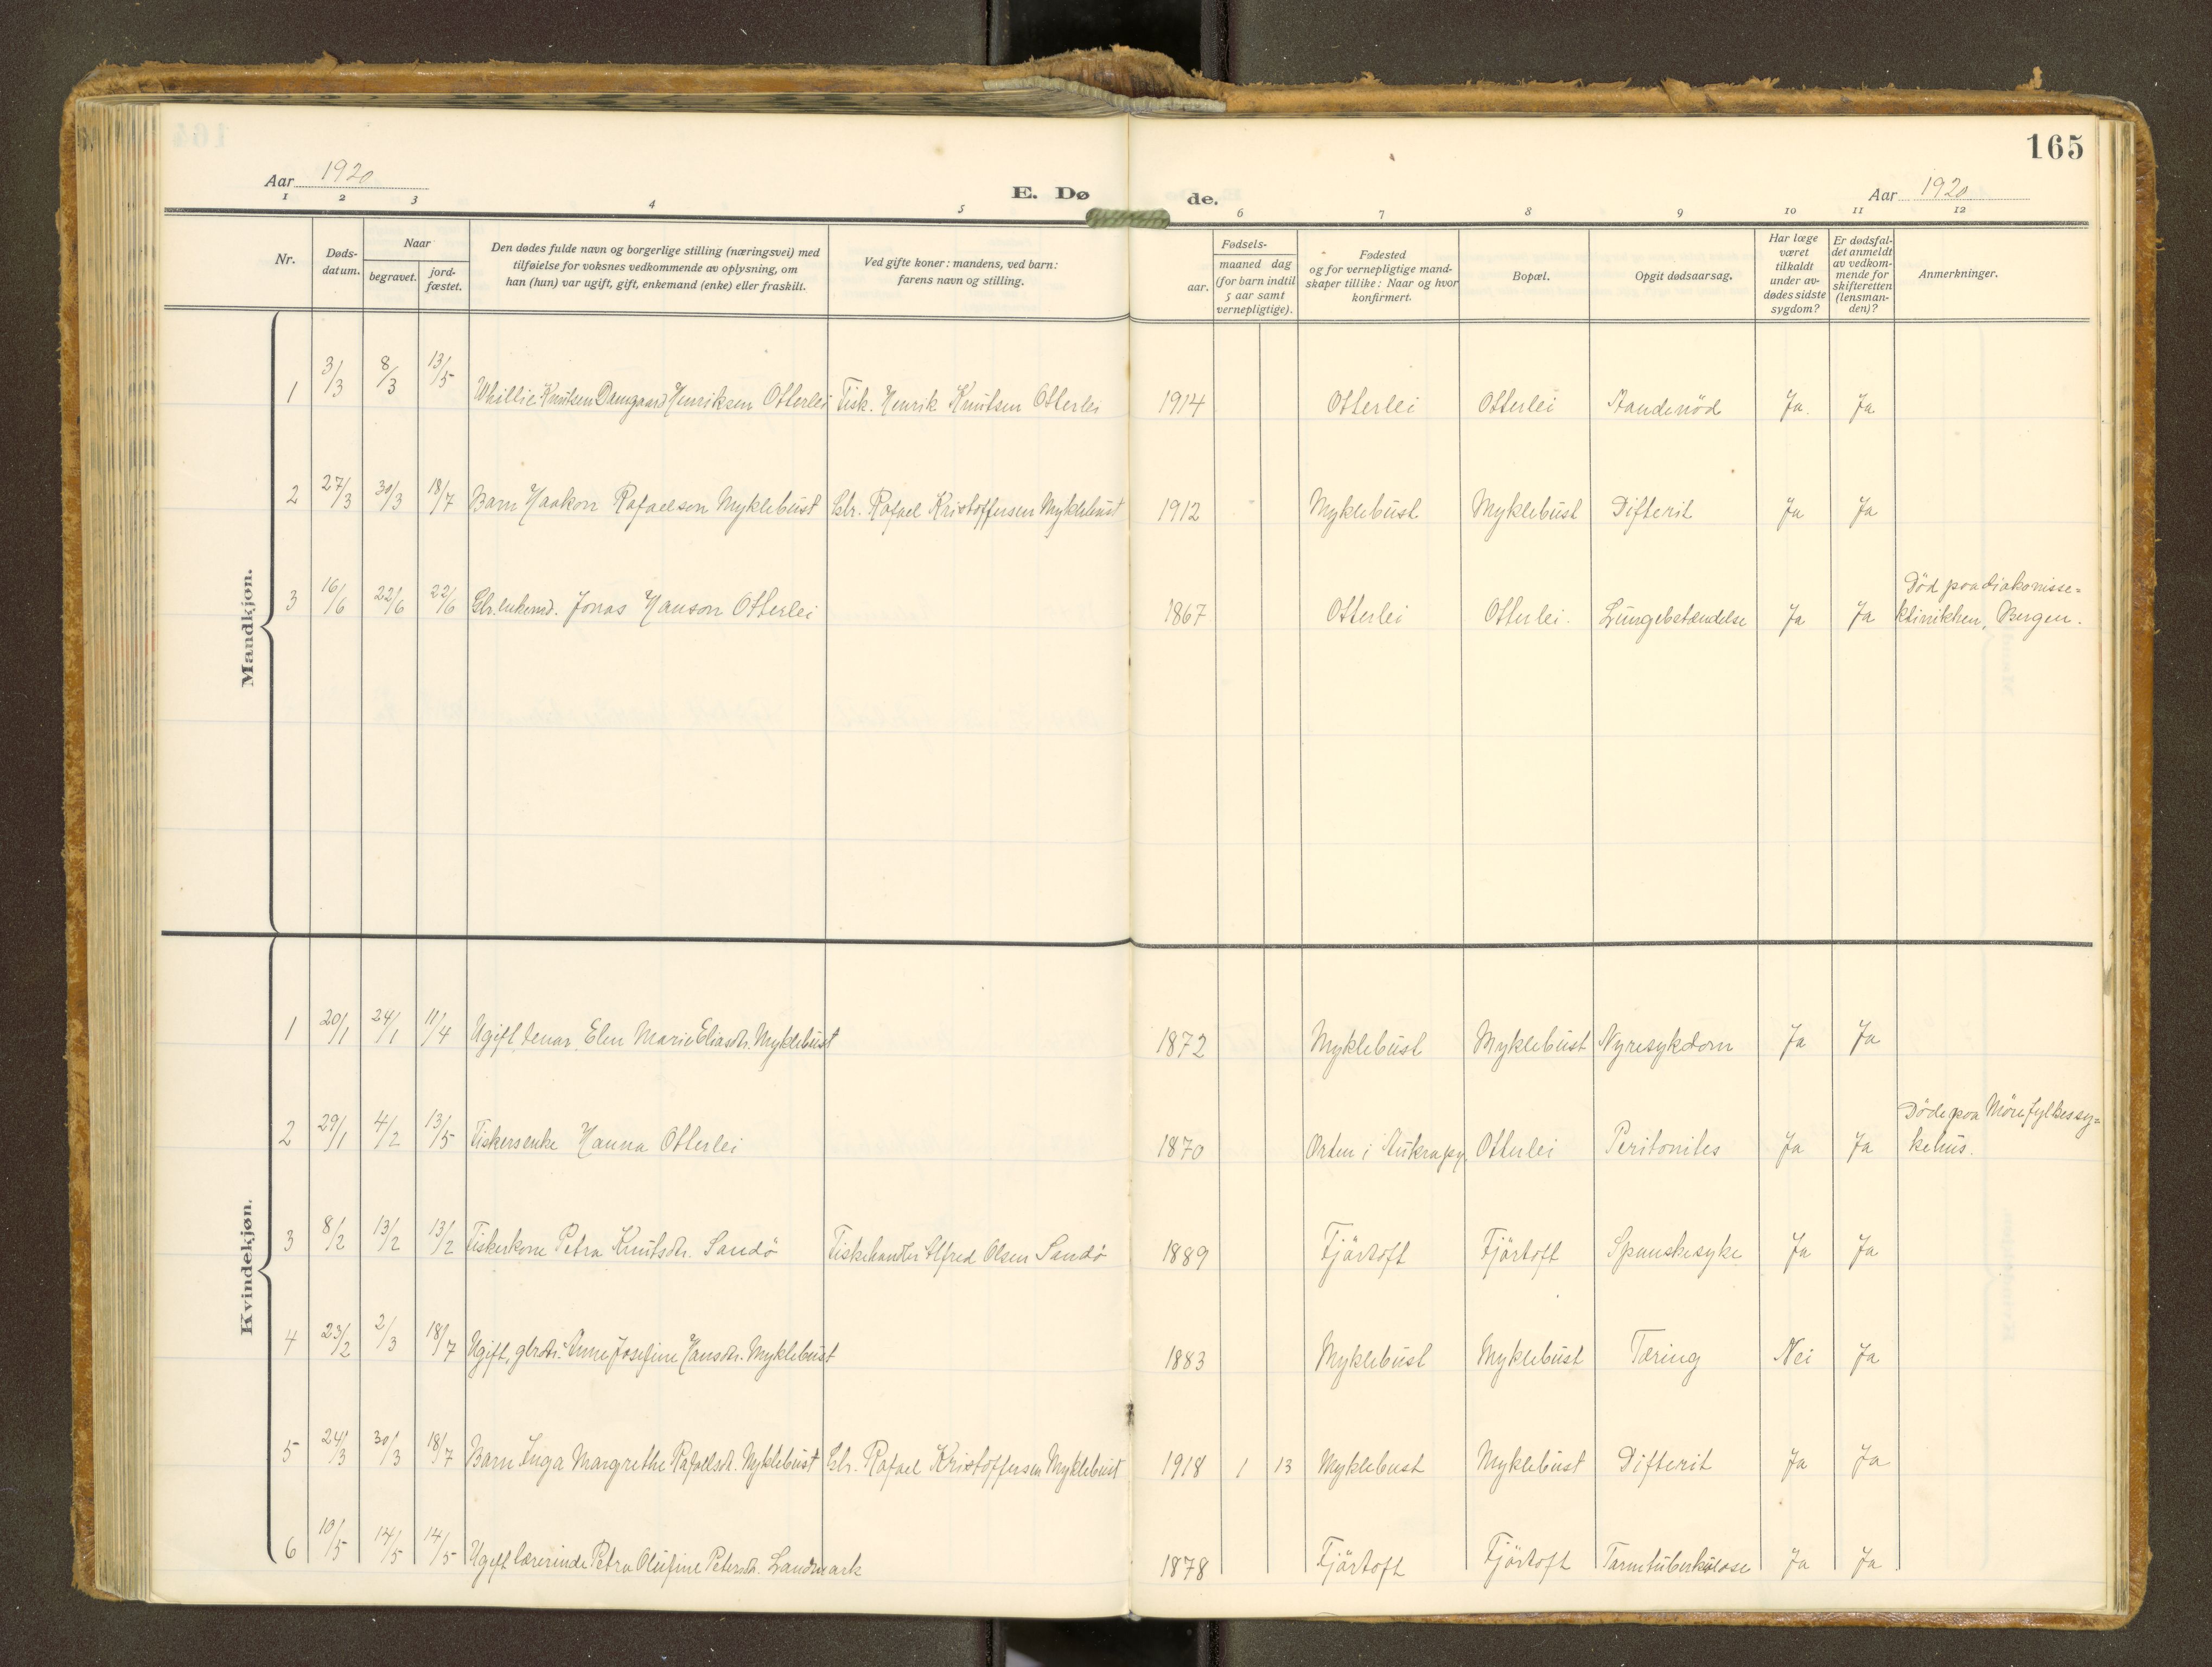 165
Aar 1920
E. Dø de.
Aar 1920
1 2 3 4 5 6 7 8 9 10 11 12
Nr.
Døds-
datum.
Naar
begravet.
jord-
fæstet.
Den dødes fulde navn og borgerlige stilling (næringsvei) med
tilføielse for voksnes vedkommende av oplysning, om
han (hun) var ugift, gift, enkemand (enke) eller fraskilt.
Ved gifte koner: mandens, ved barn:
farens navn og stilling.
Fødsels-
aar.
maaned dag
(for barn indtil
5 aar samt
vernepligtige).
Fødested
og for vernepligtige mand-
skaper tillike: Naar og hvor
konfirmert.
Bopæl.
Opgit dødsaarsag.
Har læge
været
tilkaldt
under av-
dødes sidste
sygdom?
Er dødsfal-
det anmeldt
av vedkom-
mende for
skifteretten
(lensman-
den)?
Anmerkninger.
Mandkjøn.
1 3/3 8/3 13/5 Whillie Knutsen Damgaard Henriksen Otterlei Fisk. Henrik Knutsen Otterlei 1914 Otterlei Otterlei Aandenöd Ja Ja
2 27/3 30/3 18/7 Barn Haakon Rafaelsen Myklebust Gbr. Rafael Kristoffersen Myklebust 1912 Myklebust Myklebust Difterit Ja Ja
3 16/6 22/6 22/6 Gbr. enkemd. Jonas Hanson Otterlei 1867 Otterlei Otterlei. Lungebetændelse Ja Ja Död paa diakonisse=
klinikken, Bergen.
Kvindekjøn.
1 20/1 24/1 11/4 Ugift, Elen Marie Eliasdtr. Myklebust 1872 Myklebust Myklebust Nyresykdom Ja Ja
2 29/1 4/2 13/5 Fiskersenke Hanna Otterlei 1870 Orten i Aukra Otterlei Peritonites Ja Ja Döde paa Möre fylkessy=
kehus.
3 8/2 13/2 13/2 Fiskerkone Petra Knutsdtr. Sandö Fiskehandler Alfred Olsen Sandö 1889 Fjörtoft Fjörtoft Spanskesyke Ja Ja
4 23/2 2/3 18/7 Ugift, gbrdtr. Anne Josefine Hansdtr. Myklebust 1883 Myklebust Myklebust Tæring Nei Ja
5 24/3 30/3 18/7 Barn Inga Margrethe Rafaelsdtr. Myklebust Gbr. Rafael Kristoffersen Myklebust 1918 1 13 Myklebust Myklebust Difterit Ja Ja
6 10/5 14/5 14/5 Ugift lærerinde Petra Olufine Petersdtr. Landmark 1878 Fjörtoft Fjörtoft Tarmtuberkulose Ja Ja